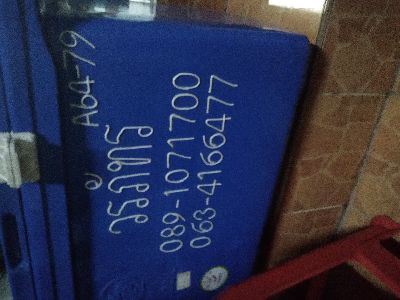 A64-79
วรภัทร
089-1071700
063-4166477